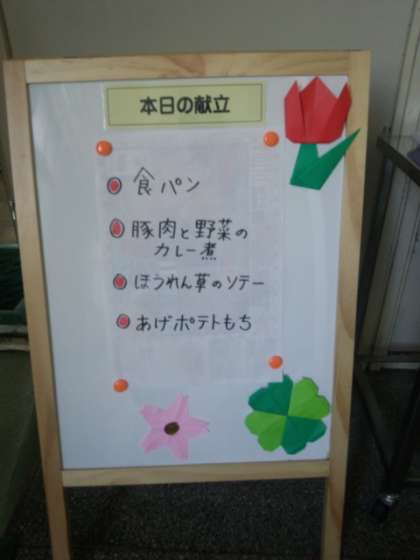 本日の献立
食パン
豚肉と野菜の
カレー煮
ほうれん草のソテー
あげポテトもち